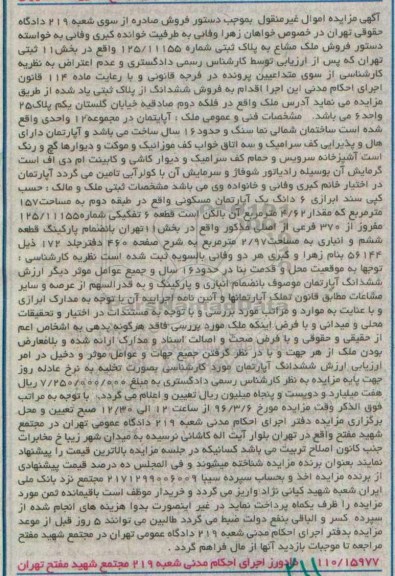 آگهی مزایده اموال غیرمنقول بموجب دستور فروش صادره از سوی شعبه ۲۱۹ دادگاه
حقوقی تهران در خصوص خواهان زهرا وفانی به طرفیت خوانده کبری وفانی به خواسته
دستور فروش ملک مشاع به پلاک ثبتی شماره ۱۲۵/۱۱۱۵۵ واقع در بخش۱۱ ثبتی
تهران که پس از ارزیابی توسط کارشناس رسمی دادگستری و عدم اعتراض به نظریه
کارشناسی از سوی متداعیین پرونده در فرجه قانونی و با رعایت ماده ۱۱۴ قانون
اجرای احکام مدنی این اجرا اقدام به فروش ششدانگ از پلاک ثبتی یاد شده از طریق
مزایده می نماید آدرس ملک واقع در فلکه دوم صادقیه خیابان گلستان یکم پلاک۲۵
واحد۶ می باشد. مشخصات فنی و عمومی ملک : آپارتمان در مجموعه۱۲ واحدی واقع
شده است ساختمان شمالی نما سنگ و حدود۱۶ سال ساخت می باشد و آپارتمان دارای
هال و پذیرایی کف سرامیک و سه اتاق خواب کف موزائیک و موکت و دیوارها گچ و رنگ
است آشپزخانه سرویس و حمام کف سرامیک و دیوار کاشی و کابینت ام دی اف است
گرمایش آن بوسیله رادیاتور شوفاژ و سرمایش آن با کولرآبی تامین می گردد آپارتمان
در اختیار خانم کبری وفانی و خانواده وی می باشد مشخصات ثبتی ملک و مالک : حسب
کپی سند ابرازی ۶ دانگ یک آپارتمان مسکونی واقع در طبقه دوم به مساحت۱۵۷
مترمربع که مقدار۴/۶۲ مترمربع آن بالکن است قطعه ۶ تفکیکی شماره۱۲۵/۱۱۱۵۵
مفروز از ۳۷۰ فرعی از اصلی مذکور واقع در بخش۱۱تهران بانضمام پارکینگ قطعه
ششم و انباری به مساحت۲/۹۷ مترمربع به شرح صفحه ۴۶۰ دفترجلد ۱۷۲ ذیل
۵۶۱۴۴ بنام زهرا و کبری هر دو وفانی بالسویه ثبت شده است نظریه کارشناسی :
توجها به موقعیت محل و قدمت بنا در حدود۱۶ سال و جمیع عوامل موثر دیگر ارزش
ششدانگ آپارتمان موصوف بانضمام انباری و پارکینگ و به قدرالسهم از عرصه و سایر
مشاعات مطابق قانون تملک آپارتمانها و آئین نامه اجراییه آن با توجه به مدارک ابرازی
و با عنایت به موارد و مراتب مورد بررسی و با توجه به مستندات در اختیار و تحقیقات
محلی و میدانی و با فرض اینکه ملک مورد بررسی فاقد هرگونه بدهی به اشخاص اعم
از حقیقی و حقوقی و با فرض صحت و اصالت اسناد و مدارک ارائه شده و بلامعارض
بودن ملک از هر جهت و با در نظر گرفتن جمیع جهات و عوامل موثر و دخیل در امر
ارزیابی ارزش ششدانگ آپارتمان مورد کارشناسی بصورت تخلیه به نرخ عادله روز
جهت پایه مزایده به نظر کارشناس رسمی دادگستری به مبلغ ۷/۲۵۰/۰۰۰/۰۰۰ ریال
هفت میلیارد و دویست و پنجاه میلیون ریال تعیین و اعلام می گردد. با توجه به مراتب
فوق الذکر وقت مزایده مورخ ۹۶/۳/۶ از ساعت ۱۲ الی ۱۲/۳۰ صبح تعیین و محل
برگزاری مزایده دفتر اجرای احکام مدنی شعبه ۲۱۹ دادگاه عمومی تهران در مجتمع
شهید مفتح واقع در تهران بلوار آیت اله کاشانی نرسیده به میدان شهر زیبا خ مخابرات
جنب کانون اصلاح تربیت می باشد کسانیکه در جلسه مزایده بالاترین قیمت را پیشنهاد
نمایند بعنوان برنده مزایده شناخته میشوند و فی المجلس ده درصد قیمت پیشنهادی
از برنده مزایده اخذ و بحساب سپرده سیبا ۲۱۷۱۲۹۹۰۰۶۰۰۹ مجتمع نزد بانک ملی
ایران شعبه شهید کیانی نژاد واریز می گردد و خریدار موظف است باقیمانده ثمن مورد
مزایده را ظرف یکماه پرداخت نماید در غیر اینصورت بدوا هزینه های انجام شده از
سپرده کسر و الباقی بنفع دولت ضبط می گردد طالبین می توانند ۵ روز قبل از موعد
مزایده بدفتر اجرای احکام مدنی شعبه ۲۱۹ دادگاه عمومی تهران در مجتمع شهید مفتح
مراجعه تا موجبات بازدید آنها از مال فراهم گردد .
۱۱۰/۱۵۹۷۷ دادورز اجرای احکام مدنی شعبه ۲۱۹ مجتمع شهید مفتح تهران